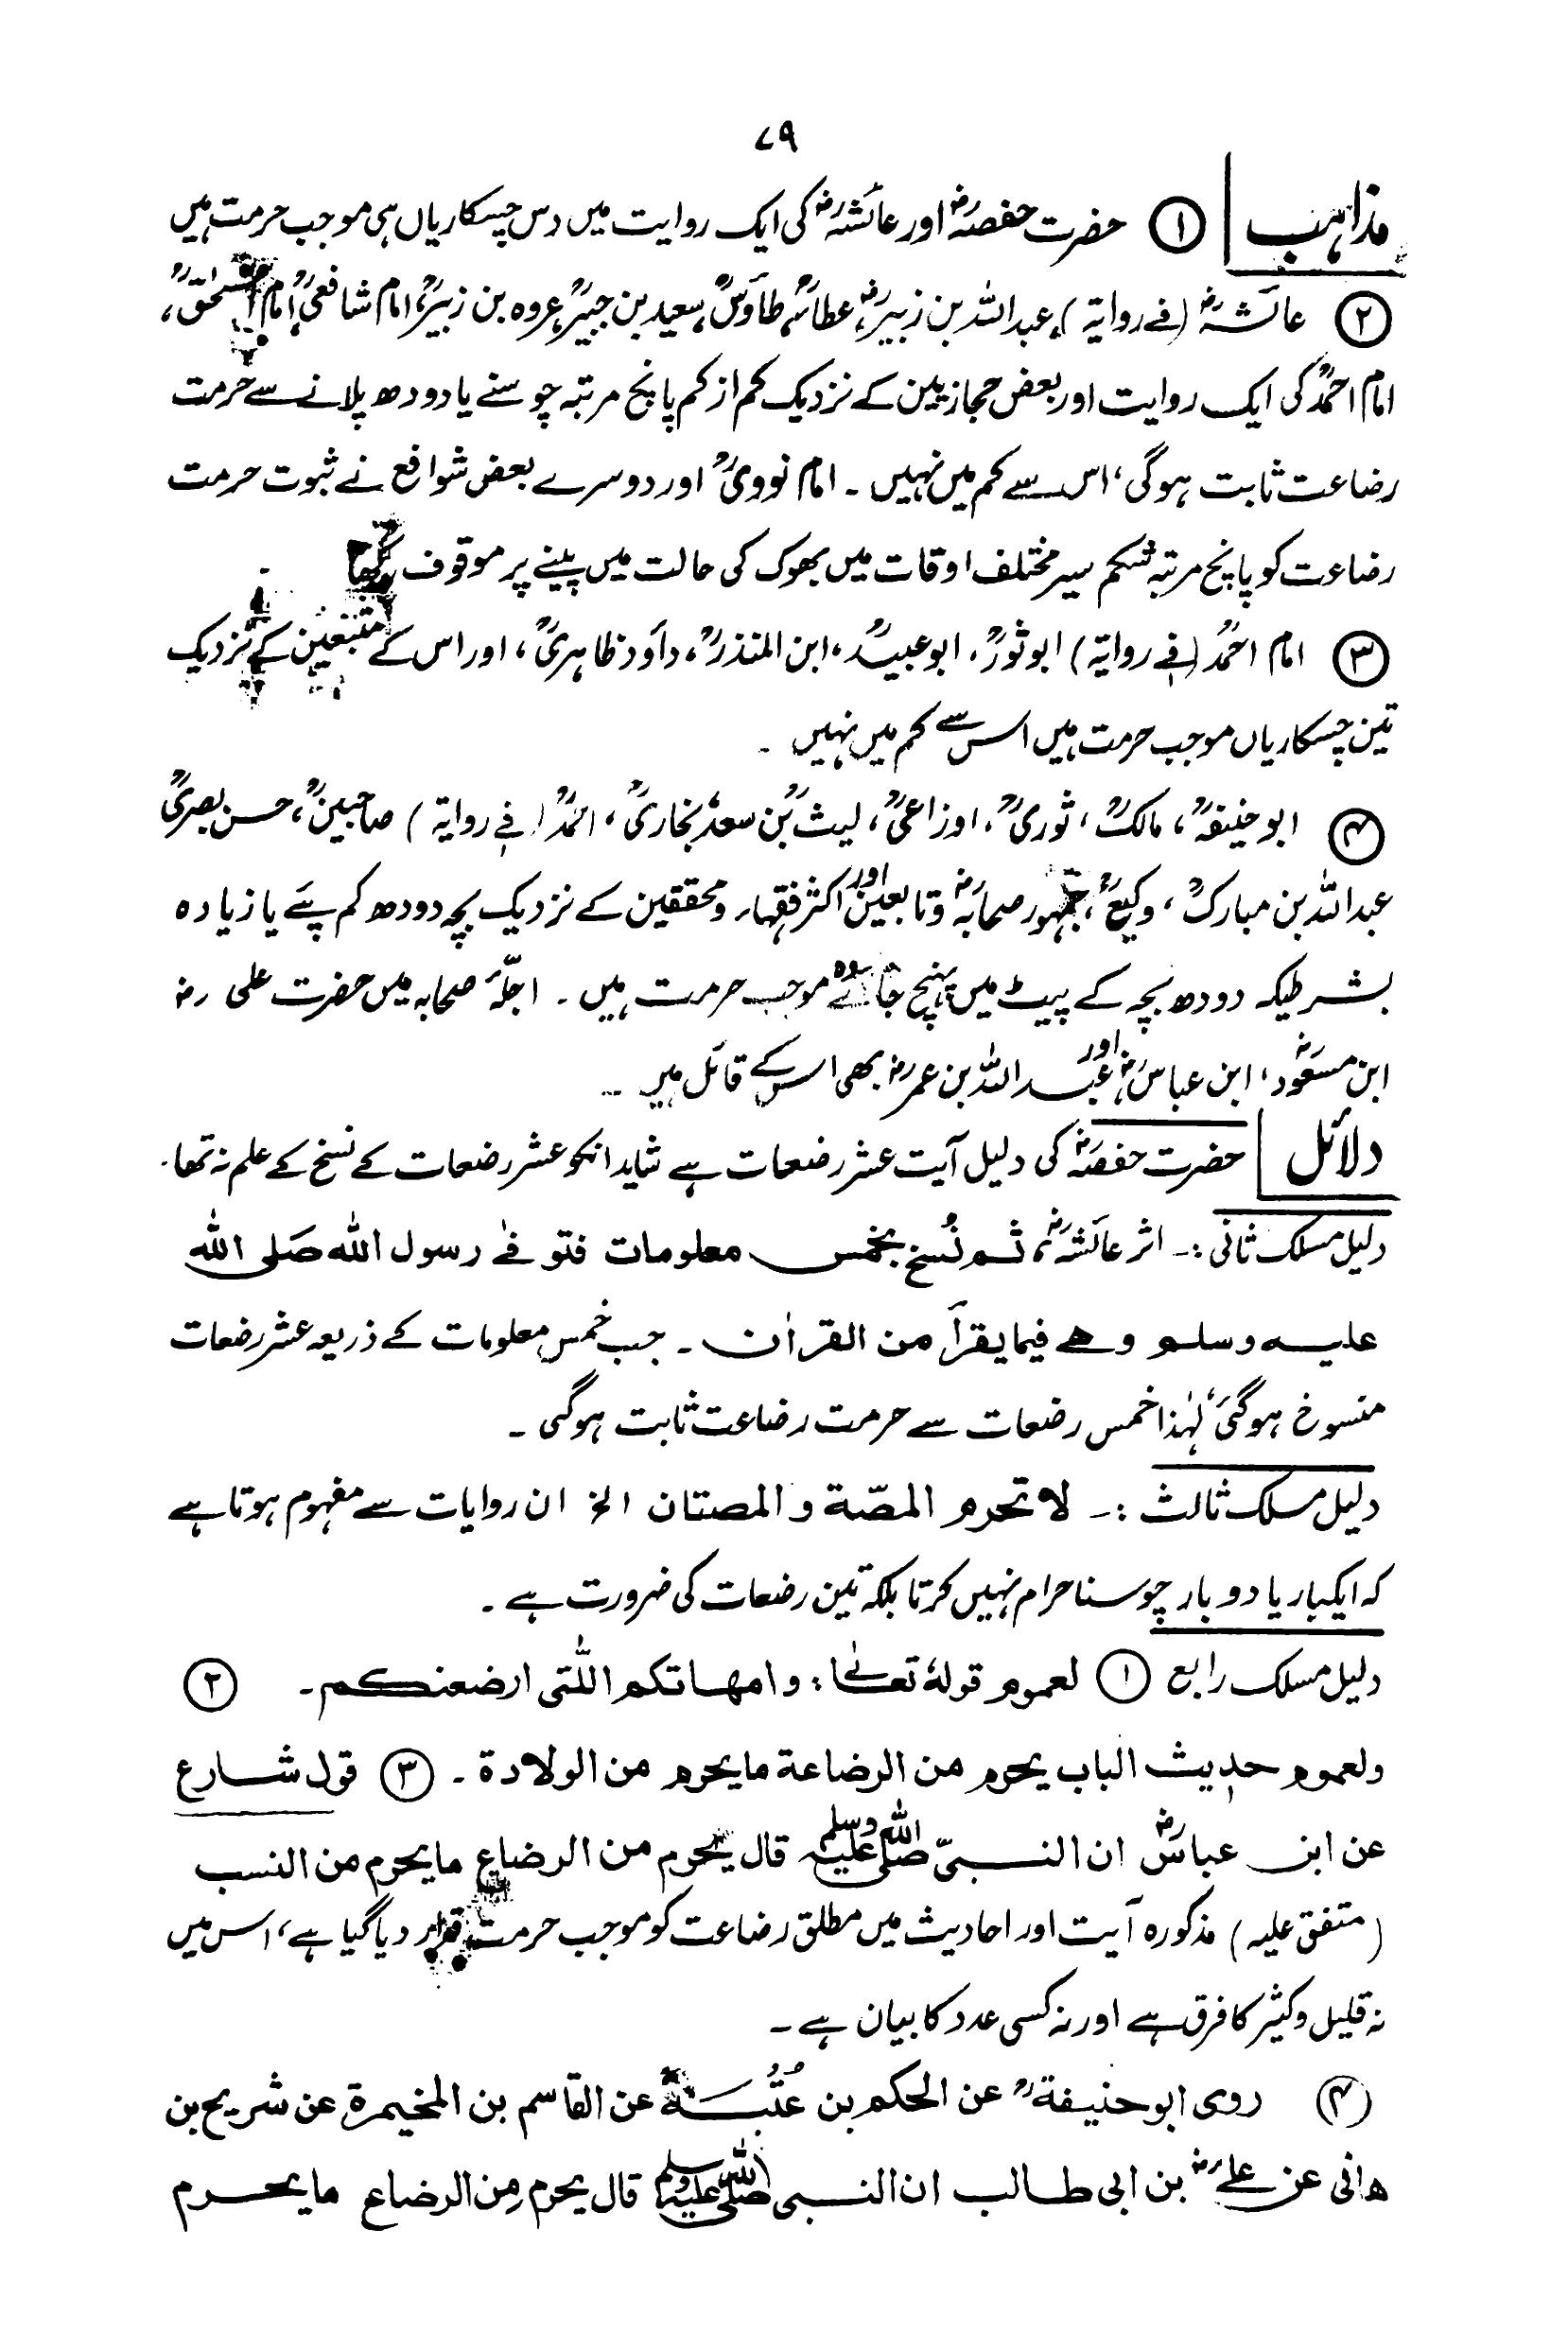 ۷۹
مذاہب ① حضرت حفصہؓ اور عائشہؓ کی ایک روایت میں دس چسکاریاں ہی موجب حرمت ہیں
② عائشہؓ (فے روایۃ)، عبداللہ بن زبیرؓ، عطاءؒ، طاؤسؒ، سعید بن جبیرؒ، عروہ بن زبیرؒ، امام شافعیؒ، امام اسحٰقؒ،
امام احمدؒ کی ایک روایت اور بعض حجازیین کے نزدیک کم از کم پانچ مرتبہ چوسنے یا دودھ پلانے سے حرمت
رضاعت ثابت ہوگی، اس سے کم میں نہیں ۔ امام نوویؒ اور دوسرے بعض شوافع نے ثبوت حرمت
رضاعت کو پانچ مرتبہ شکم سیر مختلف اوقات میں بھوک کی حالت میں پینے پر موقوف رکھا
③ امام احمدؒ (فے روایۃ) ابو ثورؒ، ابو عبیدؒ، ابن المنذرؒ، داؤد ظاہریؒ، اور اس کے متبعین کے نزدیک
تین چسکاریاں موجب حرمت ہیں اس سے کم میں نہیں ۔
④ ابو حنیفہؒ، مالکؒ، ثوریؒ، اوزاعیؒ، لیثؒ بن سعد، بخاریؒ، احمدؒ (فے روایۃ) صاحبینؒ، حسن بصریؒ
عبداللہ بن مبارکؒ، وکیعؒ، جمہور صحابہؓ و تابعینؒ اور اکثر فقہاء و محققین کے نزدیک بچہ دودھ کم پیئے یا زیادہ
بشرطیکہ دودھ بچہ کے پیٹ میں پہنچ جائے وہ موجب حرمت ہیں ۔ اجلّہ صحابہ میں حضرت علی رض
ابن مسعودؓ، ابن عباسؓ اور عبداللہ بن عمرؓ بھی اس کے قائل ہیں ۔
دلائل حضرت حفصہؓ کی دلیل آیت عشر رضعات ہے شاید انکو عشر رضعات کے نسخ کے علم نہ تھا۔
دلیل مسلک ثانی :۔ اثر عائشہؓ، ثم نُسخ بخمس معلومات فتو فے رسول الله صَلى الله
عليه وسلم وهے فيما يقرأ من القراٰن ۔ جب خمس معلومات کے ذریعہ عشر رضعات
منسوخ ہوگئی، لہٰذا خمس رضعات سے حرمت رضاعت ثابت ہوگی ۔
دلیل مسلک ثالث :۔ لا تحرم المصّة والمصتان الخ ان روایات سے مفہوم ہوتا ہے
کہ ایکبار یا دو بار چوسنا حرام نہیں کرتا بلکہ تین رضعات کی ضرورت ہے ۔
دلیل مسلک رابع ① لعموم قولهٗ تعالےٰ : وامهاتكم اللّٰتى ارضعنكم ۔ ②
ولعموم حديث الباب يحرم من الرضاعة ما يحرم من الولادة ۔ ③ قول شارع
عن ابن عباسؓ ان النبيّ صلى الله عليه وسلم قال يحرم من الرضاع ما يحرم من النسب
(متفق علیہ) مذکورہ آیت اور احادیث میں مطلق رضاعت کو موجب حرمت قرار دیا گیا ہے، اس میں
نہ قلیل و کثیر کا فرق ہے اور نہ کسی عدد کا بیان ہے ۔
④ روى ابو حنيفةؒ عن الحكم بن عن القاسم بن المخيمرة عن شريح بن
هانى عن علىؓ بن ابى طالب ان النبى صلى الله عليه وسلم قال يحرم مِن الرضاع ما يحرم